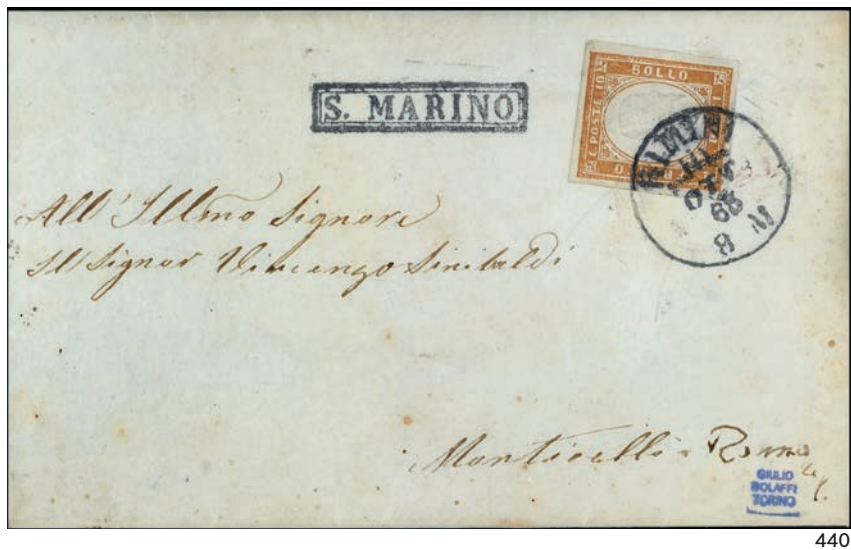 S. MARINO
BOLLO
C. POSTE 10
RIMINI
OTT
63
8 M
All' Illmo Signore
Il Signor Vincenzo Sinibaldi
Monticelli - Roma
GIULIO
BOLAFFI
TORINO
440